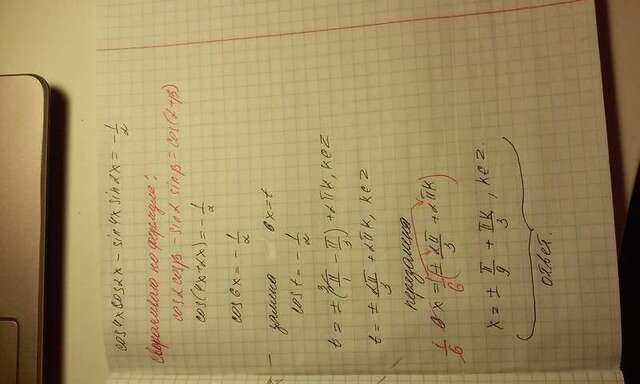 cos4xcos2x - sin4xsin2x = -1/2
сворачиваю по формуле:
cosα cosβ - sinα sinβ = cos(α+β)
cos(4x+2x) = -1/2
cos6x = -1/2
замена 6x=t
cos t = -1/2
t = ±(3\π/1 - π/3) + 2πk, k∈Z
t = ± 2π/3 + 2πk, k∈Z
перезамена
1/6 6x = 1/6(± 2π/3 + 2πk)
x = ± π/9 + πk/3, k∈Z.
ответ.